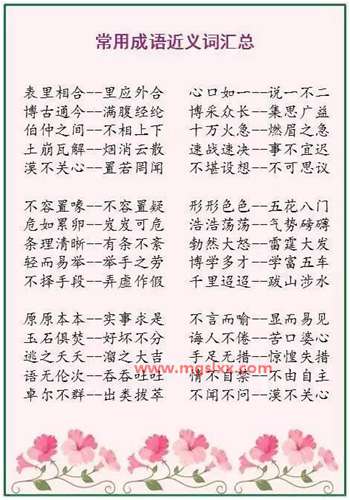 常用成语近义词汇总
表里相合--里应外合 心口如一--说一不二
博古通今--满腹经纶 博采众长--集思广益
伯仲之间--不相上下 十万火急--燃眉之急
土崩瓦解--烟消云散 速战速决--事不宜迟
漠不关心--置若罔闻 不堪设想--不可思议
不容置喙--不容置疑 形形色色--五花八门
危如累卵--岌岌可危 浩浩荡荡--气势磅礴
条理清晰--有条不紊 勃然大怒--雷霆大发
轻而易举--举手之劳 博学多才--学富五车
不择手段--弄虚作假 千里迢迢--跋山涉水
原原本本--实事求是 不言而喻--显而易见
玉石俱焚--好坏不分 诲人不倦--苦口婆心
逃之夭夭--溜之大吉 手足无措--惊惶失措
www.mgslxx.com
语无伦次--吞吞吐吐 情不自禁--不由自主
卓尔不群--出类拔萃 不闻不问--漠不关心